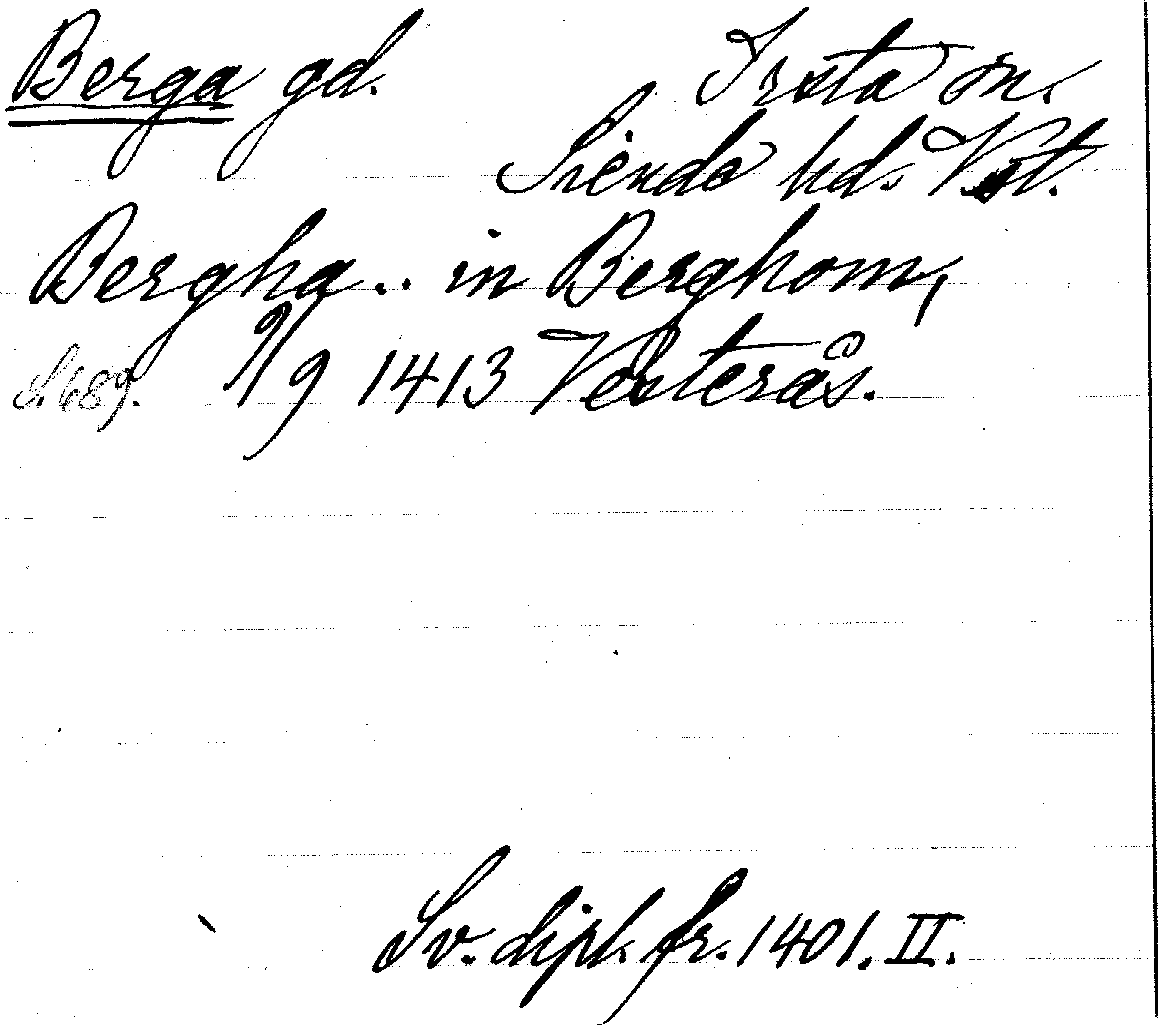 Berga gd. Irsta sn.
Siende hd. Vst.
Bergha.. in Berghom,
S. 689. 9/9 1413 Vesterås.
Sv. dipl. fr. 1401. II.